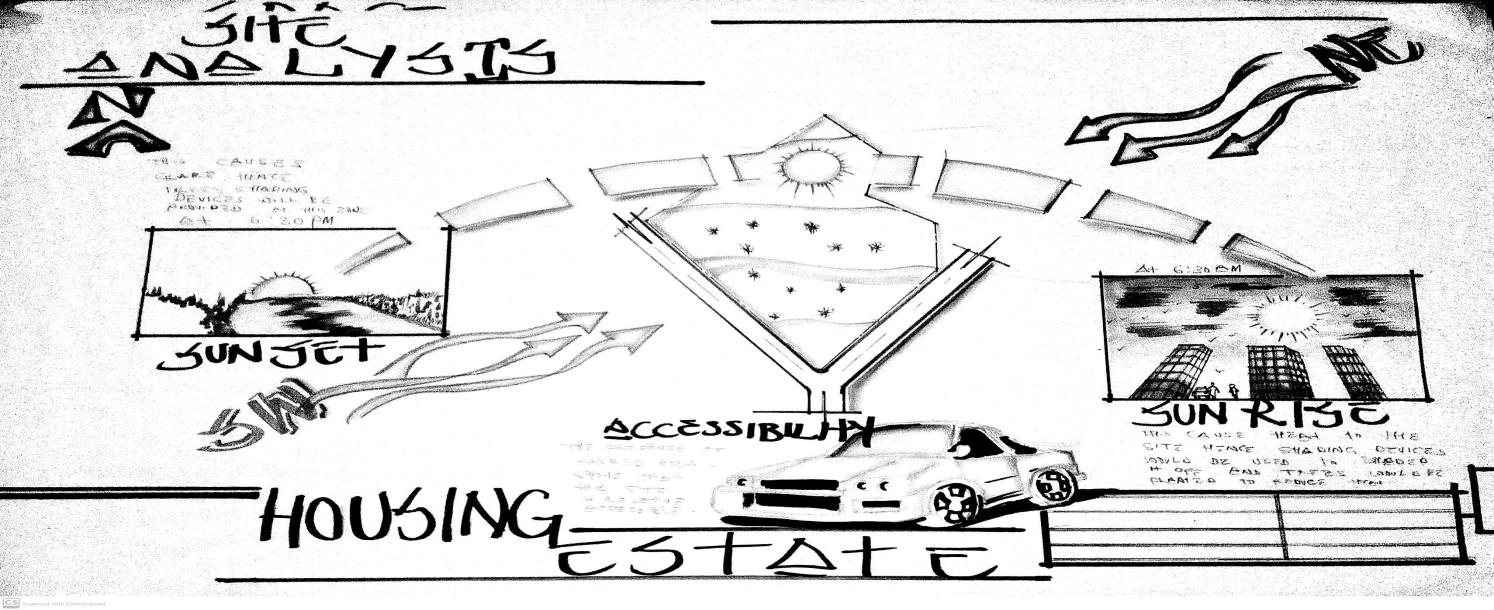 SITE
ANALYSIS
N
NE
THIS CAUSES
GLARE HENCE
TREES SHADING
DEVICES WILL BE
PROVIDED AT THIS ZONE
At 6:30 PM
SUN SET
SW
At 6:30 AM
SUN RISE
THIS CAUSE HEAT TO THE
SITE HENCE SHADING DEVICES
WOULD BE USED TO SHADED
IT OFF AND TREES WOULD BE
PLANTED TO REDUCE HEAT
ACCESSIBILITY
THE PRESENCE OF
HOUSING
ESTATE
CS Scanned with CamScanner